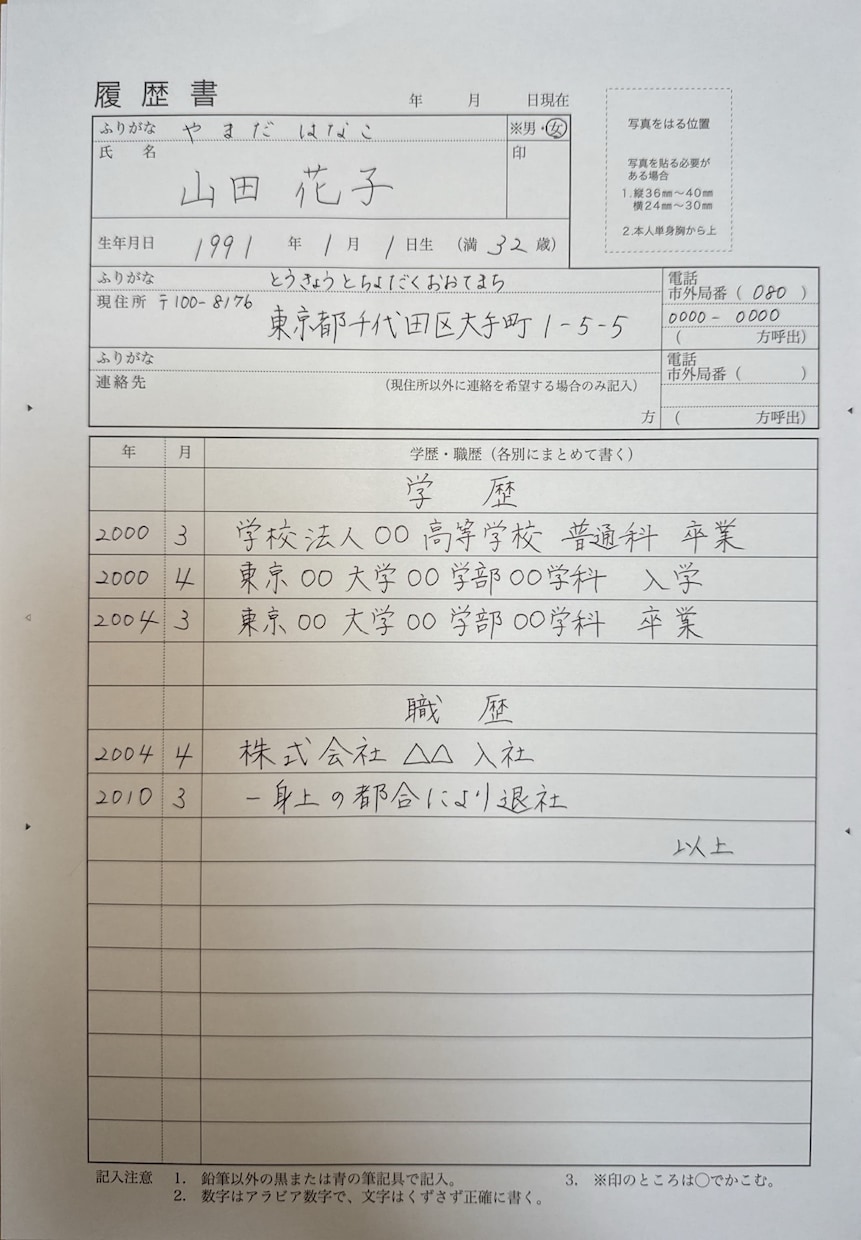 履歴書
年 月 日現在
写真をはる位置
写真を貼る必要が
ある場合
1.縦36㎜〜40㎜
横24㎜〜30㎜
2.本人単身胸から上
ふりがな やまだ はなこ ※男・女
氏 名 山田 花子 印
生年月日 1991 年 1 月 1 日生 (満 32 歳)
ふりがな とうきょうとちよだくおおてまち
現住所 〒100-8176
東京都千代田区大手町1-5-5
電話
市外局番( 080 )
0000-0000
( 方呼出)
ふりがな
連絡先 (現住所以外に連絡を希望する場合のみ記入)
方
電話
市外局番( )
( 方呼出)
年 月 学歴・職歴(各別にまとめて書く)
学 歴
2000 3 学校法人○○高等学校 普通科 卒業
2000 4 東京○○大学○○学部○○学科 入学
2004 3 東京○○大学○○学部○○学科 卒業
職 歴
2004 4 株式会社△△入社
2010 3 一身上の都合により退社
以上
記入注意 1. 鉛筆以外の黒または青の筆記具で記入。 3. ※印のところは○でかこむ。
2. 数字はアラビア数字で、文字はくずさず正確に書く。